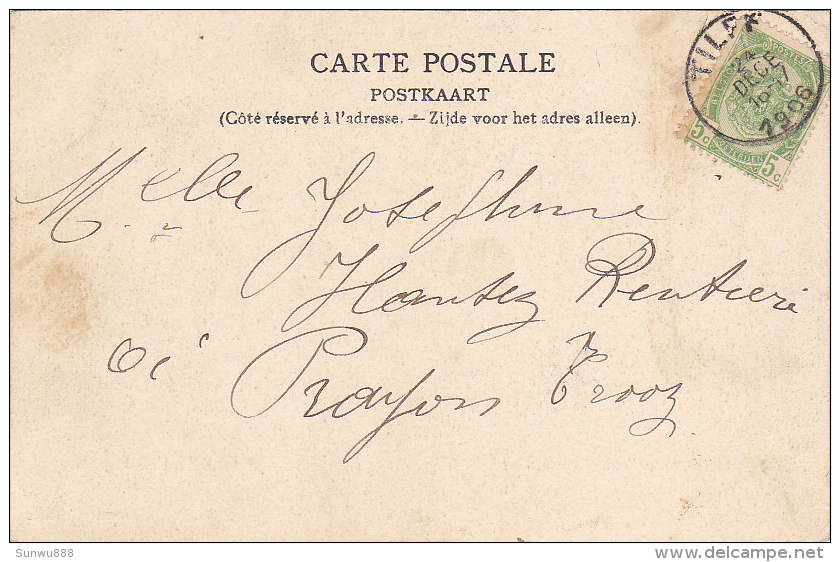 CARTE POSTALE
POSTKAART
(Côté réservé à l'adresse. — Zijde voor het adres alleen).
TILFF
24
DECE
16-17
1906
5c 5c
Melle Josephine
Hantez Rentière
à Prayon Trooz
Sunwu888
www.delcampe.net